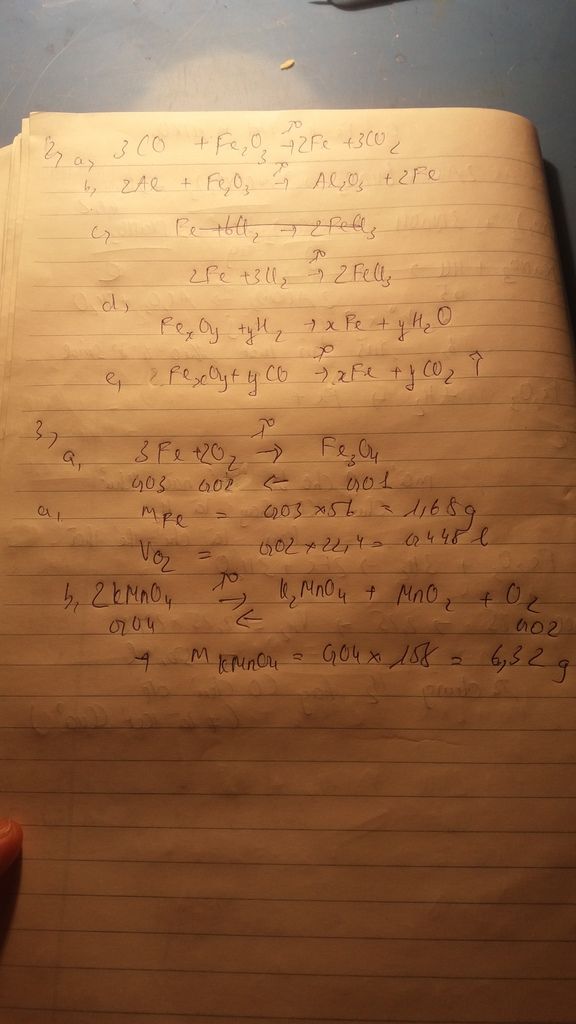 2, a, 3CO + Fe₂O₃ →t° 2Fe + 3CO₂
b, 2Al + Fe₂O₃ →t° Al₂O₃ + 2Fe
c, Fe + 6Cl₂ → 2FeCl₃
2Fe + 3Cl₂ →t° 2FeCl₃
d,
FexOy + yH₂ → xFe + yH₂O
e, FexOy + yCO →t° xFe + yCO₂ ↑
3,
a, 3Fe + 2O₂ →t° Fe₃O₄
0,03 0,02 ← 0,01
a, mFe = 0,03 × 56 = 1,68 g
VO₂ = 0,02 × 22,4 = 0,448 l
b, 2KMnO₄ →t° K₂MnO₄ + MnO₂ + O₂
0,04 ← 0,02
→ mKMnO₄ = 0,04 × 158 = 6,32 g